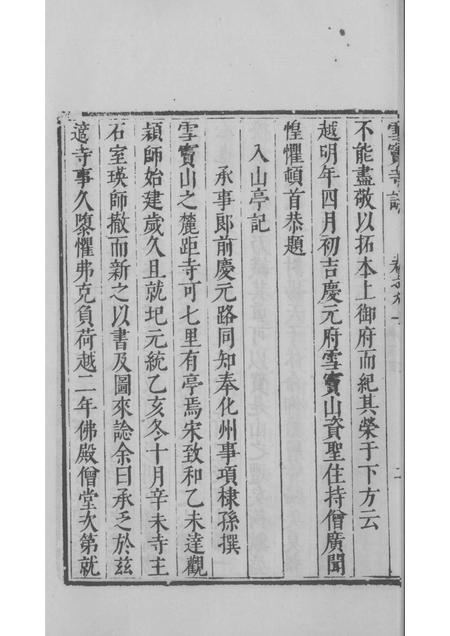 雪竇寺誌
不能盡敬以拓本上御府而紀其榮于下方云
越明年四月初吉慶元府雪竇山資聖住持僧廣聞
惶懼頓首恭題
入山亭記
承事郎前慶元路同知奉化州事項棣孫撰
雪竇山之麓距寺可七里有亭焉宋致和乙未達觀
穎師始建歲久且就圯元統乙亥冬十月辛未寺主
石室瑛師撤而新之以書及圖來諗余曰承乏於兹
寺事久隳懼弗克負荷越二年佛殿僧堂次第就